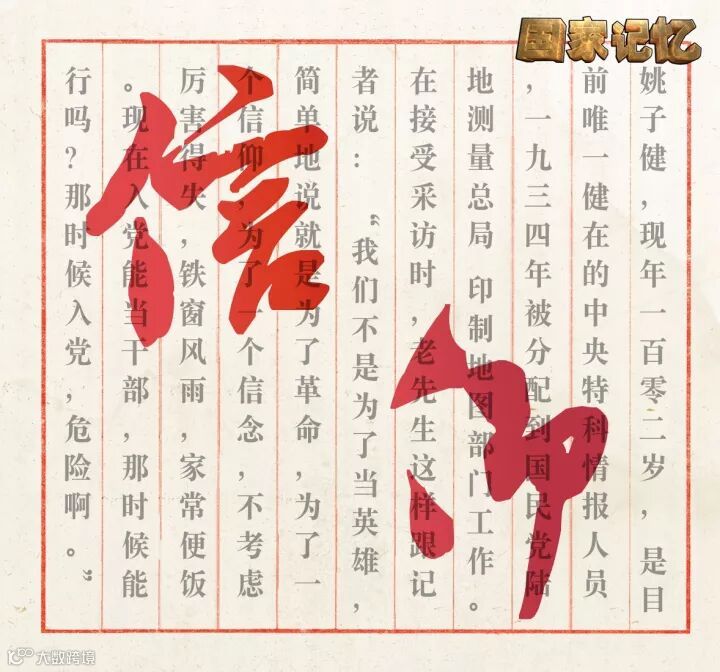 国家记忆
信仰
姚子健，现年一百零二岁，是目
前唯一健在的中央特科情报人员
，一九三四年被分配到国民党陆
地测量总局 印制地图部门工作。
在接受采访时，老先生这样跟记
者说：“我们不是为了当英雄，
简单地说就是为了革命，为了一
个信仰，为了一个信念，不考虑
厉害得失，铁窗风雨，家常便饭
。现在入党能当干部，那时候能
行吗？那时候入党，危险啊。”
大数跨境